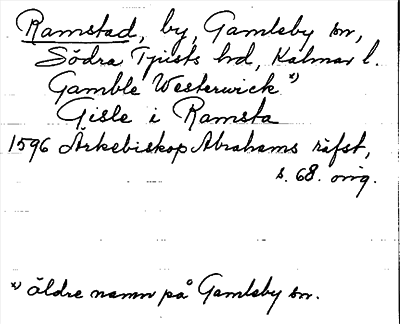 Ramstad, by, Gamleby sn,
Södra Tjusts hd, Kalmar l.
Gamble Westerwick *)
Gisle i Ramsta
1596 Ärkebiskop Abrahams räfst,
s. 68. orig.
*) äldre namn på Gamleby sn.